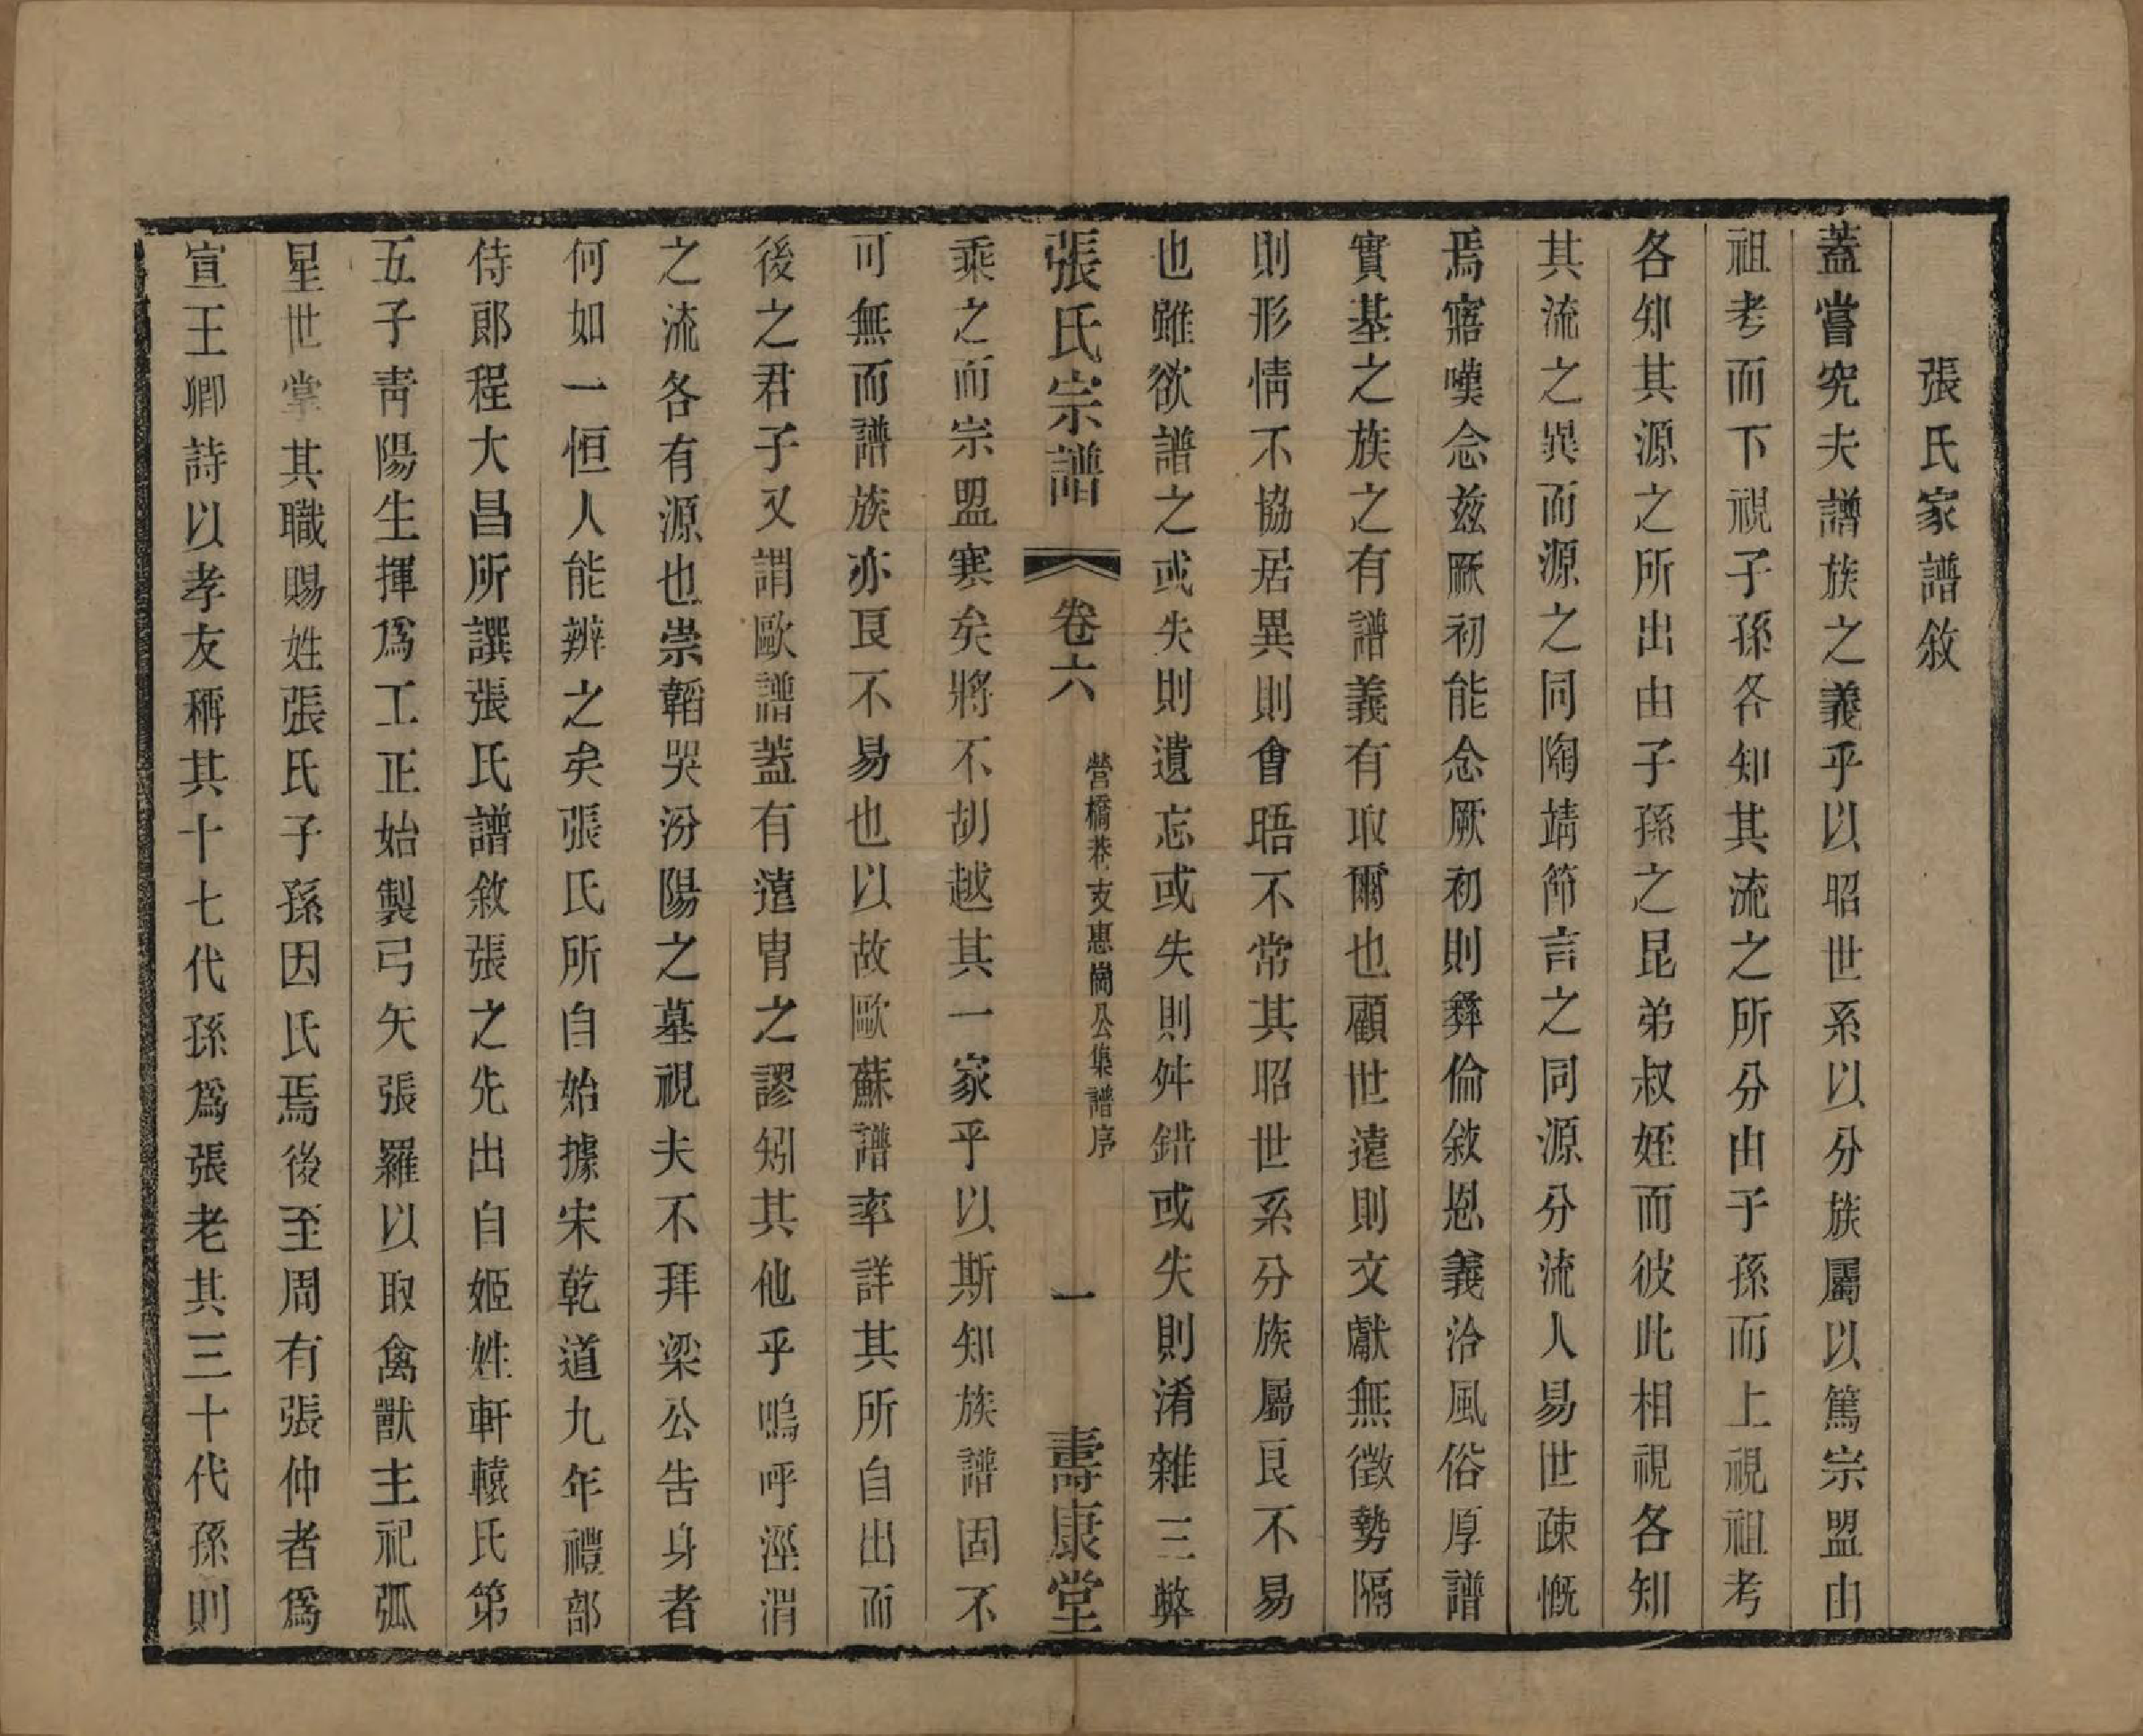 張氏家譜敘
蓋嘗究夫譜族之義乎以昭世系以分族屬以篤宗盟由
祖考而下視子孫各知其流之所分由子孫而上視祖考
各知其源之所出由子孫之昆弟叔姪而彼此相視各知
其流之異而源之同陶靖節言之同源分流人易世疎慨
焉寤嘆念茲厥初能念厥初則彝倫敘恩義洽風俗厚譜
實基之族之有譜義有取爾也顧世遠則文獻無徵勢隔
則形情不協居異則會晤不常其昭世系分族屬良不易
也雖欲譜之或失則遺忘或失則舛錯或失則淆雜三弊
張氏宗譜 卷六 營橋巷支惠崗公集譜序 一 壽康堂
乘之而宗盟寒矣將不胡越其一家乎以斯知族譜固不
可無而譜族亦良不易也以故歐蘇譜率詳其所自出而
後之君子又謂歐譜蓋有遠胄之謬矧其他乎嗚呼涇渭
之流各有源也崇韜哭汾陽之墓視夫不拜梁公告身者
何如一恒人能辨之矣張氏所自始據宋乾道九年禮部
侍郎程大昌所譔張氏譜敘張之先出自姬姓軒轅氏第
五子靑陽生揮爲工正始製弓矢張羅以取禽獸主祀弧
星世掌其職賜姓張氏子孫因氏焉後至周有張仲者爲
宣王卿詩以孝友稱其十七代孫爲張老其三十代孫則